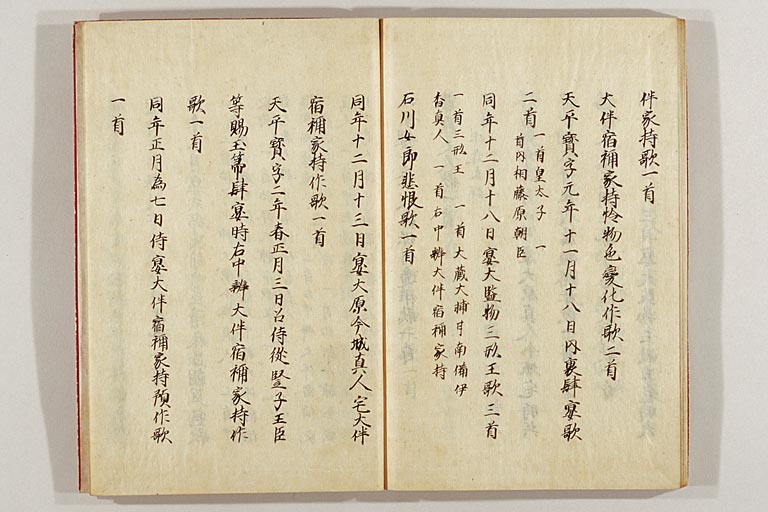 伴家持歌一首
大伴宿祢家持怜物色變化作歌二首
天平寶字元年十一月十八日内裏肆宴歌
二首 一首皇太子 一
首内相藤原朝臣
同年十二月十八日宴大監物三形王歌三首
一首三形王 一首大蔵大輔甘南備伊
香真人 一首右中辨大伴宿祢家持
石川女郎悲恨歌一首
同年十二月十三日宴大原今城真人宅大伴
宿祢家持作歌一首
天平寶字二年春正月三日召侍從竪子王臣
等賜玉箒肆宴時右中辨大伴宿祢家持作
歌一首
同年正月為七日侍宴大伴宿祢家持預作歌
一首